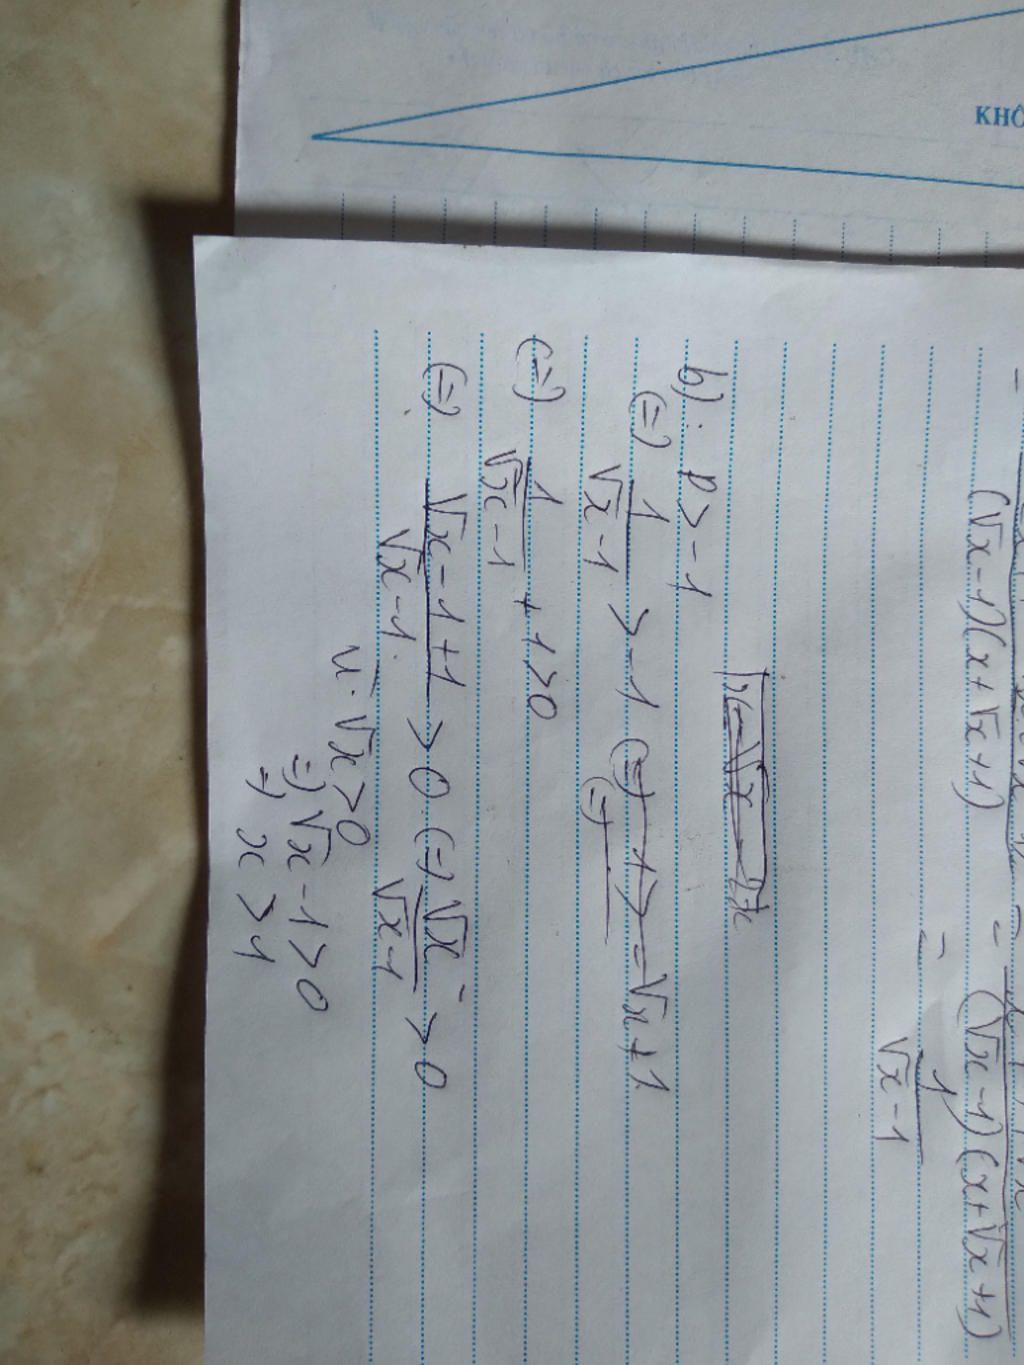 KHÔ
(√x-1)(x+√x+1)
(√x-1)(x+√x+1)
= 1/(√x-1)
b): P > -1
(=) 1/(√x-1) > -1 (=) 1 > -√x+1
(=)
(=) 1/(√x-1) + 1 > 0
(=) (√x-1+1)/(√x-1) > 0 (=) √x/(√x-1) > 0
Vì √x > 0
=) √x-1 > 0
=) x > 1